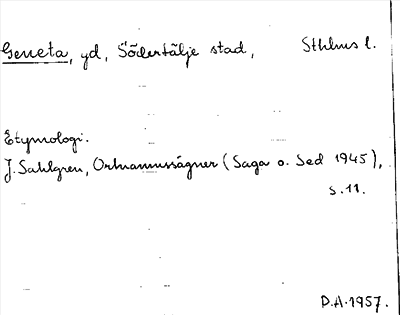 Geneta, yd, Södertälje stad, Sthlms l.
Etymologi.
J. Sahlgren, Ortnamnssägner (Saga o. Sed 1945),
s. 11.
D.A. 1957.